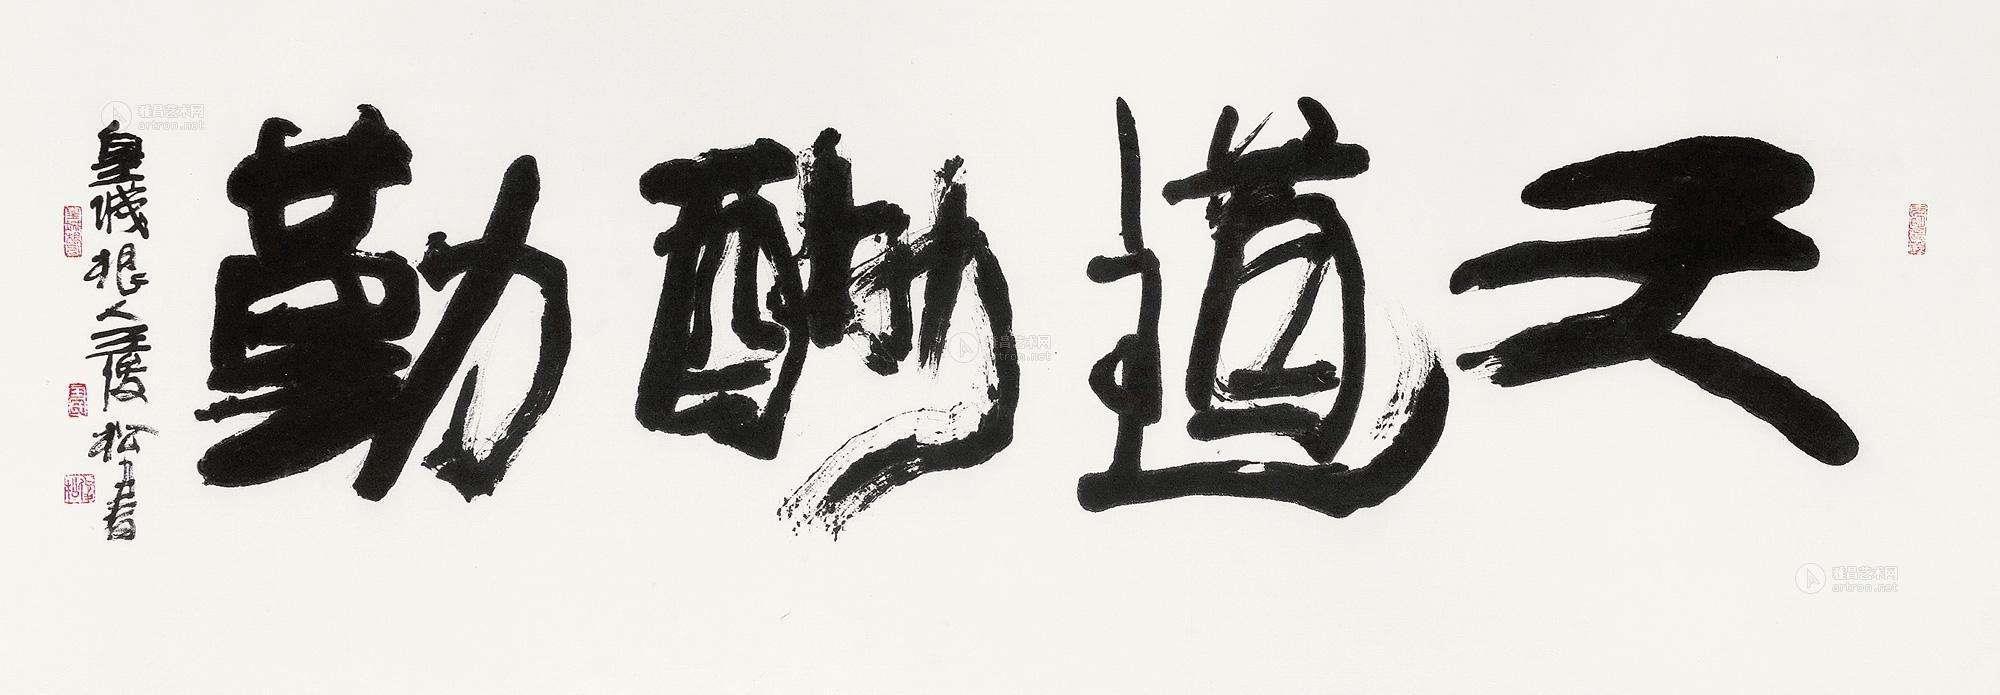 天道酬勤
皇城根人王俊松书
雅昌艺术网
artron.net
雅昌艺术网
artron.net
雅昌艺术网
artron.net